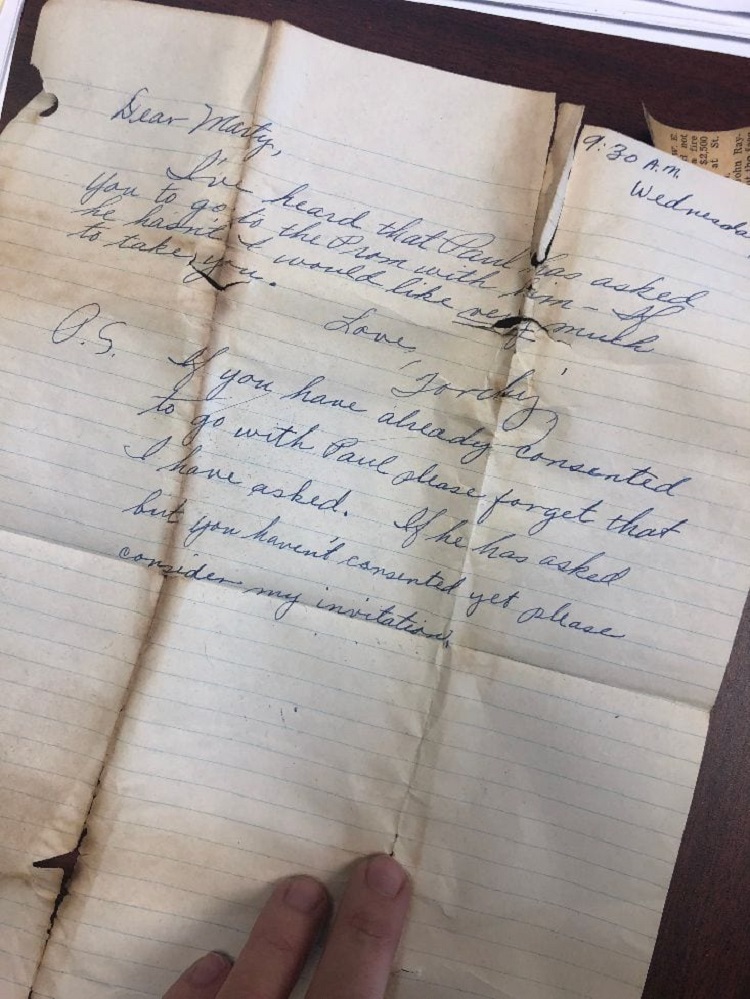 9:30 A.M.
Wednesday
Dear Marty,
I've heard that Paul has asked
you to go to the Prom with him - If
he hasn't I would like very much
to take you.
Love,
"Tordy"
P.S. If you have already consented
to go with Paul please forget that
I have asked. If he has asked
but you haven't consented yet please
consider my invitation.
w. E.
not
a fire
$2,500
at St.
John Ray-